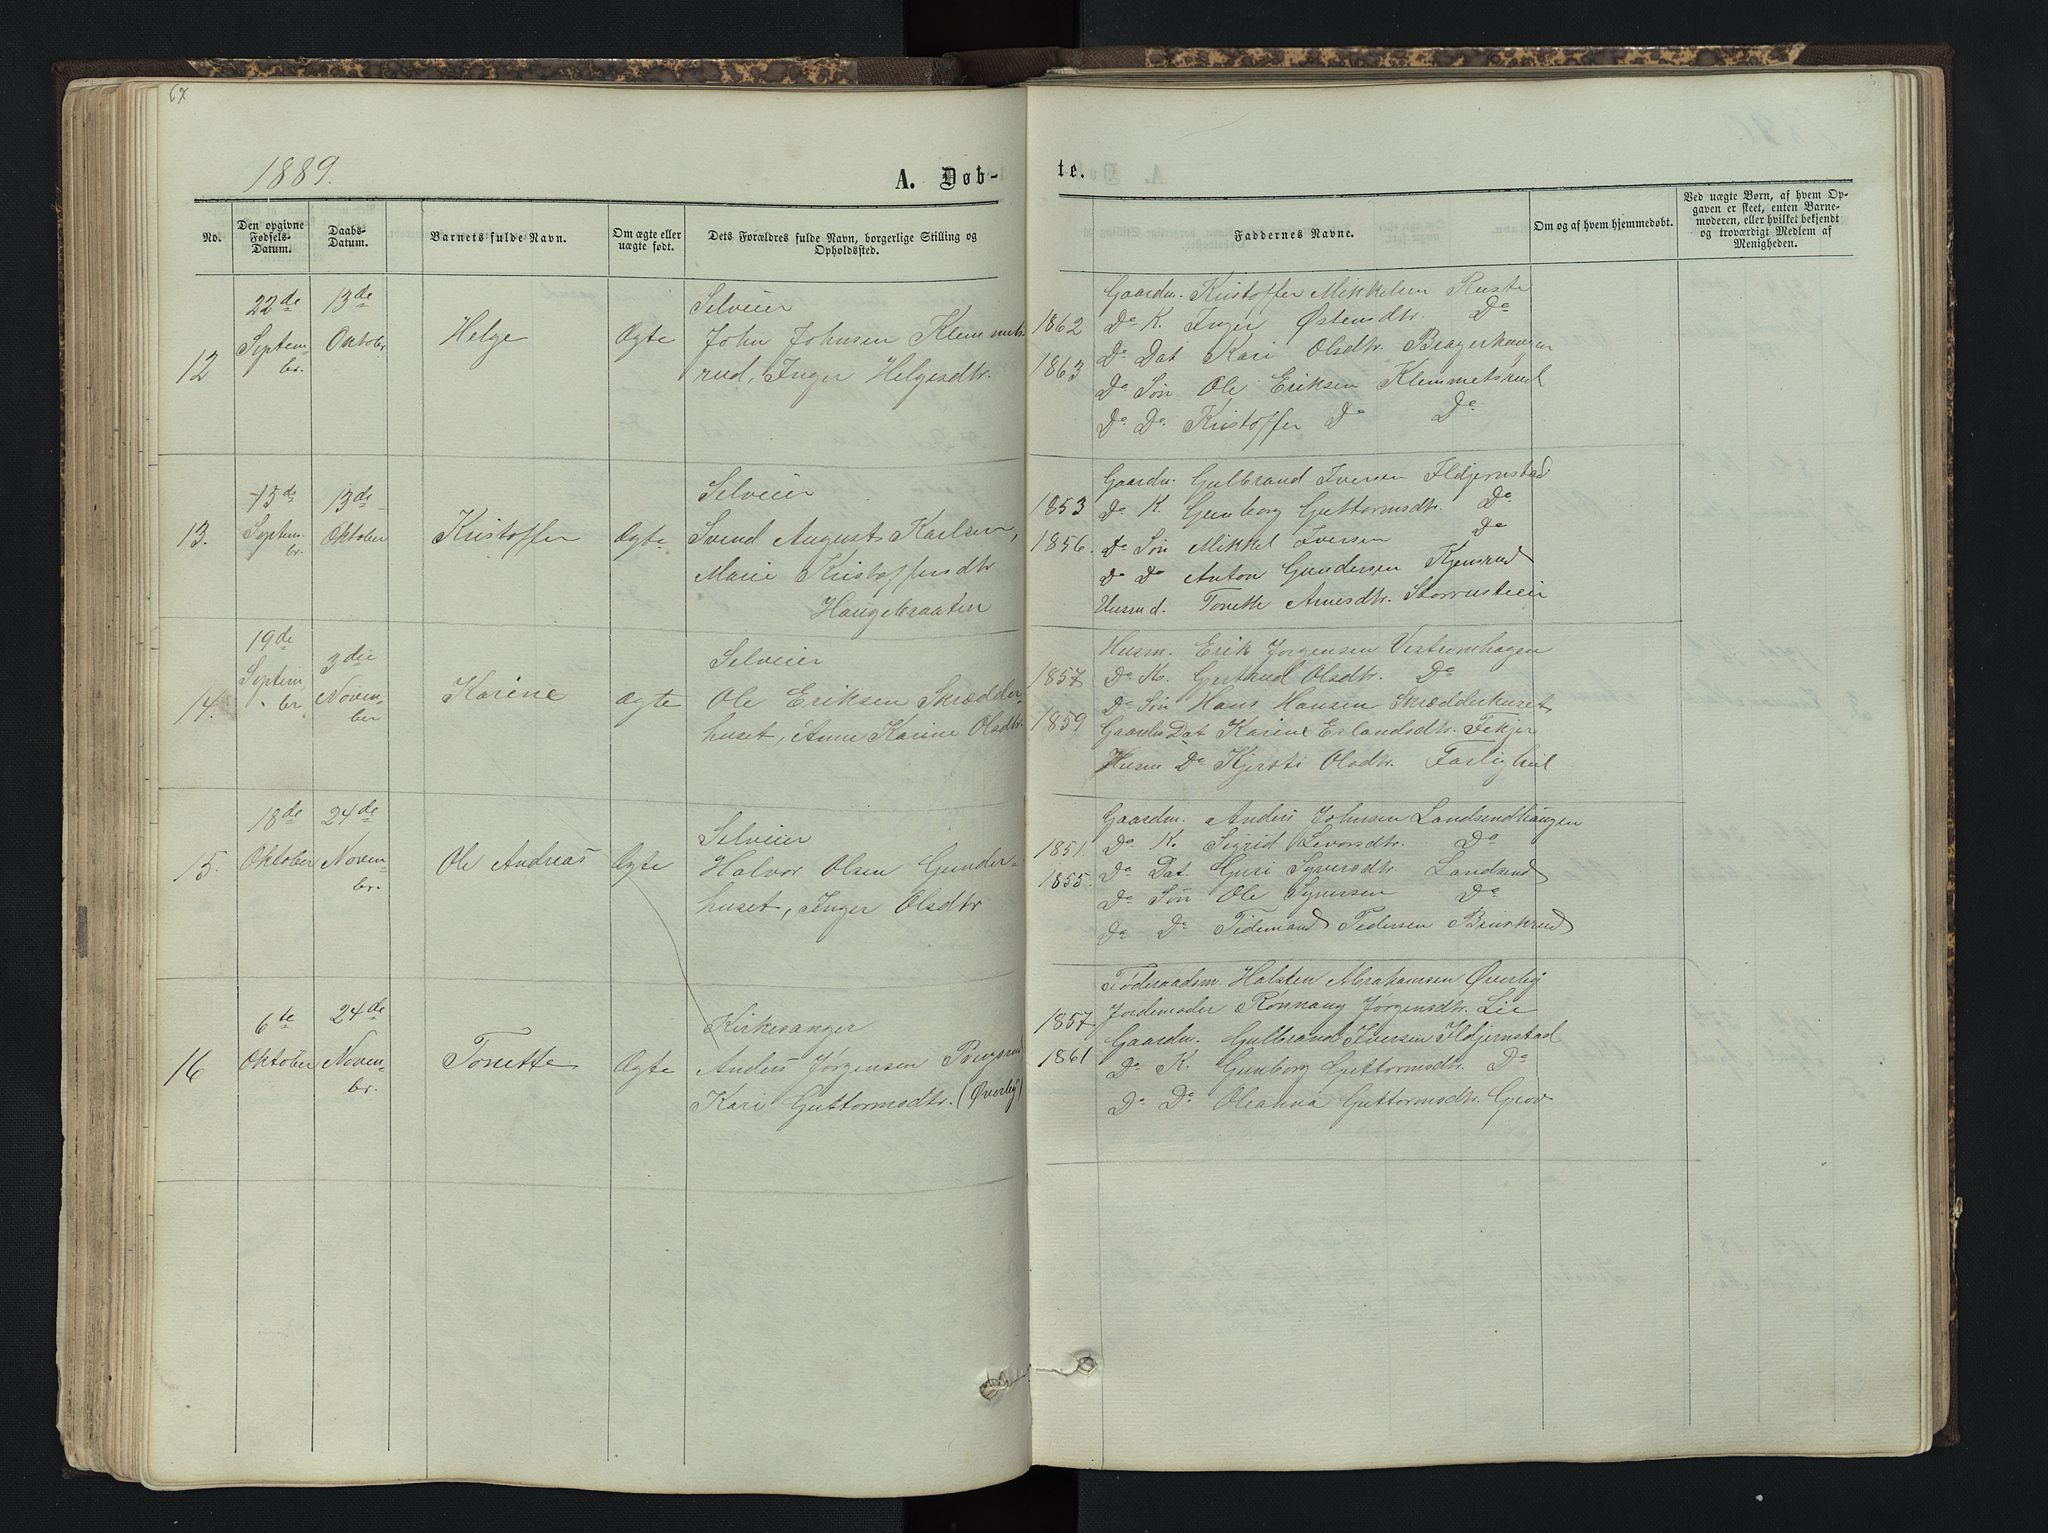 67
1889.
A. Døb-
te.
No.
Den opgivne Fødsels-Datum.
Daabs-Datum.
Barnets fulde Navn.
Om ægte eller uægte født.
Dets Forældres fulde Navn, borgerlige Stilling og Opholdssted.
Faddernes Navne.
Om og af hvem hjemmedøbt.
Ved uægte Børn, af hvem Op-
gaven er skeet, enten Barne-
moderen, eller hvilket bekjendt
og troværdigt Medlem af
Menigheden.
12
22de Septem-br.
13de Oktober
Helge
Ægte
Selveier
John Johnsen Klemmets-
rud, Inger Helgesdtr.
1862
1863
Gaardm. Kristoffer Mikkelsen Ruste
Do K. Inger Østensdtr. Do
Do Dat Kari Olsdtr. Bragerhaugen
Do Søn Ole Eriksen Klemmetsrud
Do Do Kristoffer Do Do
13.
15de Septem-br.
13de Oktober
Kristoffer
Ægte
Selveier
Svend August Karlsen,
Marie Kristoffersdtr
Haugebraaten
1853
1856.
Gaardm. Gulbrand Iversen Ildjernstad
Do K. Gunborg Guttormsdtr. Do
Do Søn Mikkel Iversen Do
Do Do Anton Gundersen Kjensrud
Husmd. Tonette Arnesdtr. Storrusteien
14.
19de Septem-ber
3die Novem-ber
Karine
Ægte
Selveier
Ole Eriksen Skrædder-
huset, Anne Karine Olsdtr.
1857
1859
Husm. Erik Jørgensen Vestromhagen
Do K. Gjertrud Olsdtr. Do
Do Søn Hans Hansen Skrædderhuset
Gaardm Dat Karine Erlandsdtr. Fekjer
Husm Do Kjersti Olsdtr.
15.
18de Oktober
24de Novem-br.
Ole Andreas
Ægte
Selveier
Halvor Olsen Gunder-
huset, Inger Olsdtr
1851.
1855.
Gaardm. Anders Johnsen Landsendhaugen
Do K. Sigrid Levorsdtr. Do
Do Dat. Guri Syversdtr. Landsend
Do Søn Ole Syversen Do
Do Do Tidemand Pedersen
16
6te Oktober
24de Novem-br.
Tonette
Ægte
Kirkesanger
Anders Jørgensen
Kari Guttormsdtr. (Øverby)
1857
1861
Føderaadsm. Halsten Abrahamsen Øverby
Jordemoder Rønnaug Jørgensdtr. Lie
Gaardm. Gulbrand Iversen Ildjernstad
Do K. Gunborg Guttormsdtr. Do
Do Do Oleanna Guttormsdtr. Grov